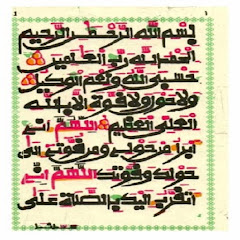 بسم الله الرحمن الرحيم
الحمد لله رب العالمين
حسبي الله ونعم الوكيل
ولا حول ولا قوة الا بالله
العلي العظيم اللهم اني
ابرأ من حولي ومن قوتي الى
حولك وقوتك اللهم اني
اتقرب اليك بالصلاة على